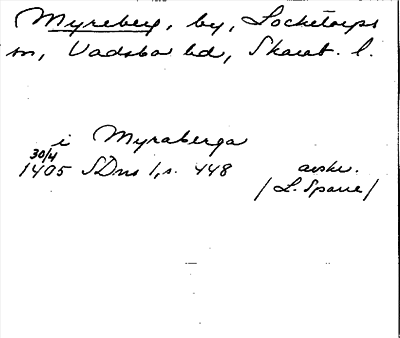 Myreberg, by, Locketorps
sn, Vadsbo hd, Skarab. l.
i Myraberga
30/4
1405 SDns 1, s. 448 avskr.
/L. Sparre/